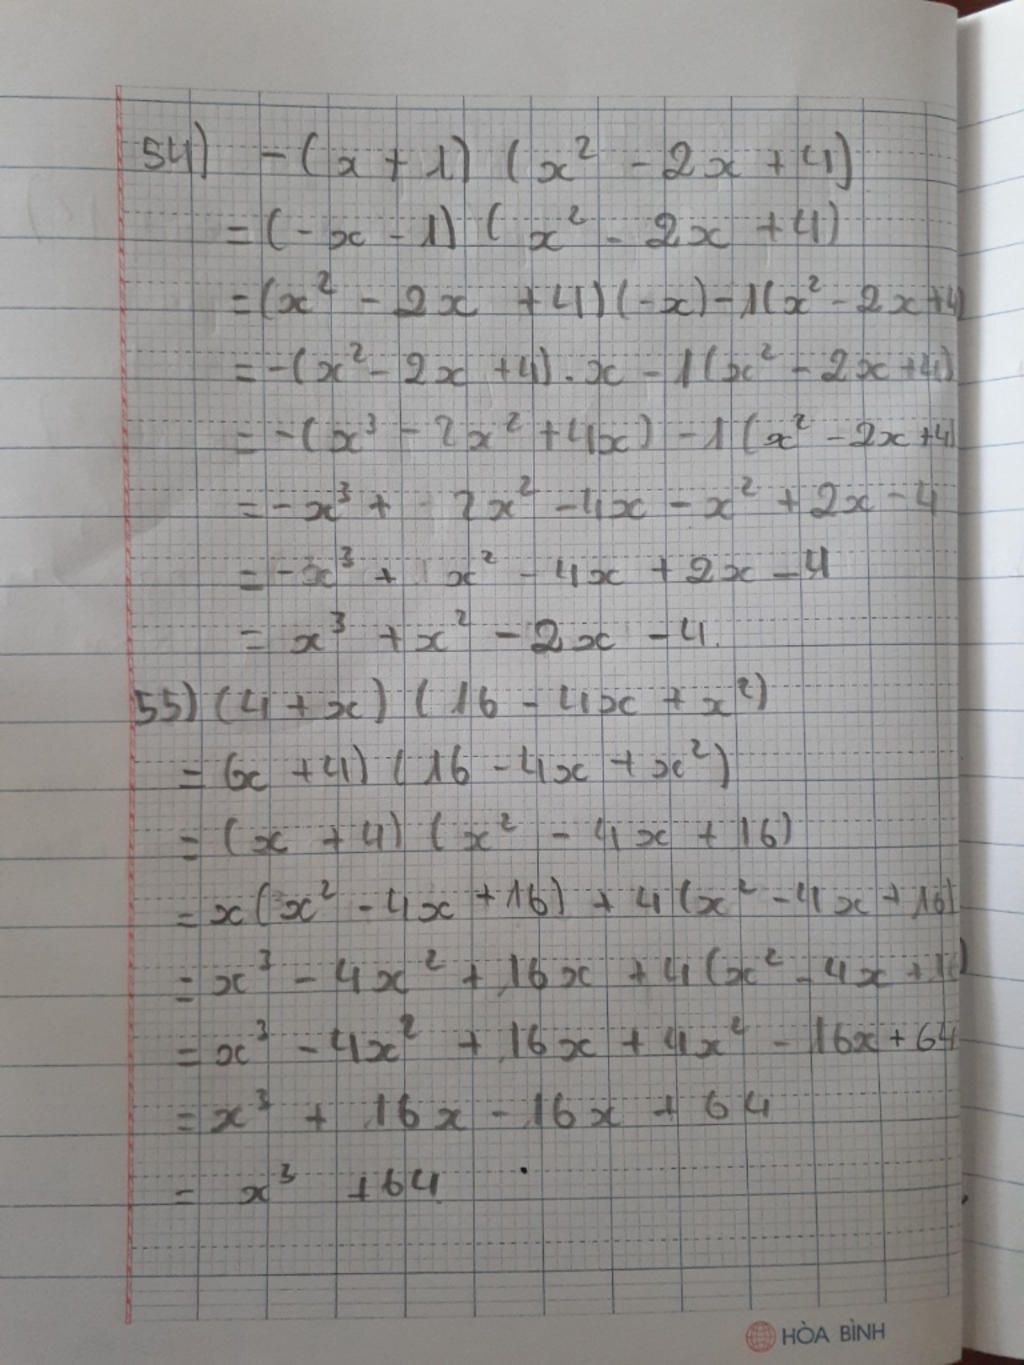 54) -(x + 1) (x² - 2x + 4)
= (-x - 1) (x² - 2x + 4)
= (x² - 2x + 4)(-x) - 1(x² - 2x + 4)
= -(x² - 2x + 4).x - 1(x² - 2x + 4)
= -(x³ - 2x² + 4x) - 1(x² - 2x + 4)
= -x³ + 2x² - 4x - x² + 2x - 4
= -x³ + x² - 4x + 2x - 4
= x³ + x² - 2x - 4.
55) (4 + x) (16 - 4x + x²)
= (x + 4) (16 - 4x + x²)
= (x + 4) (x² - 4x + 16)
= x(x² - 4x + 16) + 4(x² - 4x + 16)
= x³ - 4x² + 16x + 4(x² - 4x + 16)
= x³ - 4x² + 16x + 4x² - 16x + 64
= x³ + 16x - 16x + 64
= x³ + 64
HÒA BÌNH